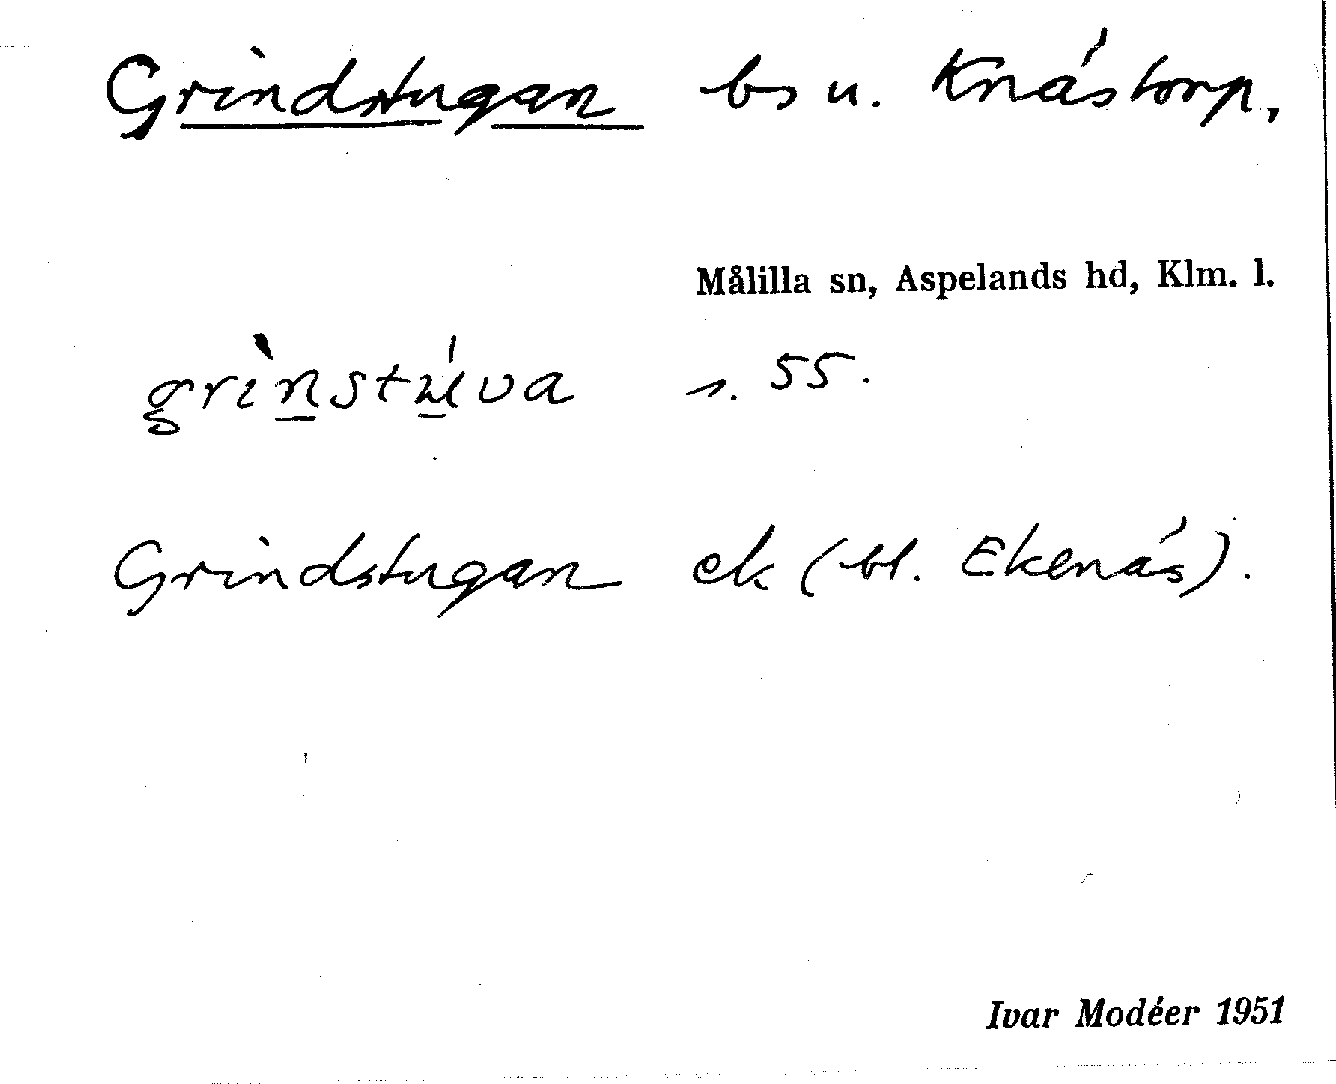 Grindstugan bs u. Knástorp,
Målilla sn, Aspelands hd, Klm. l.
grìnstúva s. 55.
Grindstugan ek (bl. Ekenás).
Ivar Modéer 1951